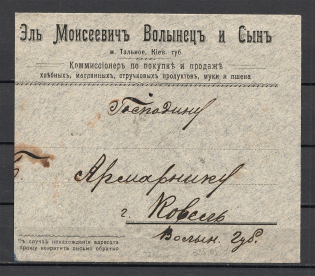 Эль Моисеевичъ Волынецъ и Сынъ
м. Тальное, Кіев. губ.
Коммиссіонеръ по покупкѣ и продажѣ
хлѣбныхъ, маслянныхъ, стручковыхъ продуктовъ, муки и пшена
Господину
Ярмарнику
г. Ковель
Волын. Губ.
Въ случаѣ ненахожденія адресата
прошу возвратить письмо обратно